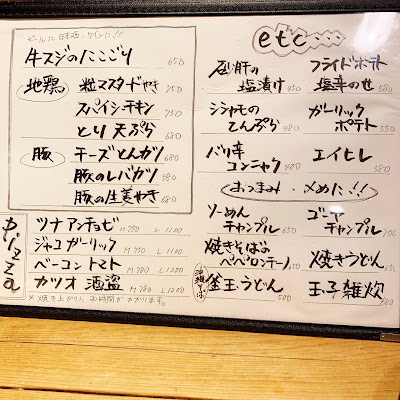 ビールに日本酒、ワインに!!
牛スジのにこごり 650
地鶏
粒マスタードやき 750
スパイシーチキン 750
とり天ぷら 680
豚
チーズとんカツ 680
豚のレバカツ 580
豚の生姜やき 680
ツナアンチョビ M 750 L 1100
ジャコガーリック M 750 L 1100
ベーコントマト M 780 L 1200
カツオ酒盗 M 780 L 1200
※焼き上がりにお時間がかかります。
etc
砂肝の塩漬け 450
フライドポテト塩辛のせ 580
シシャモのてんぷら 480
ガーリックポテト 550
バリ辛コンニャク 480
エイヒレ 580
おつまみ、〆めに!!
そーめんチャンプル 650
ゴーヤチャンプル 700
焼きそばペペロンチーノ 650
焼きうどん
釜玉うどん 580
玉子雑炊 680